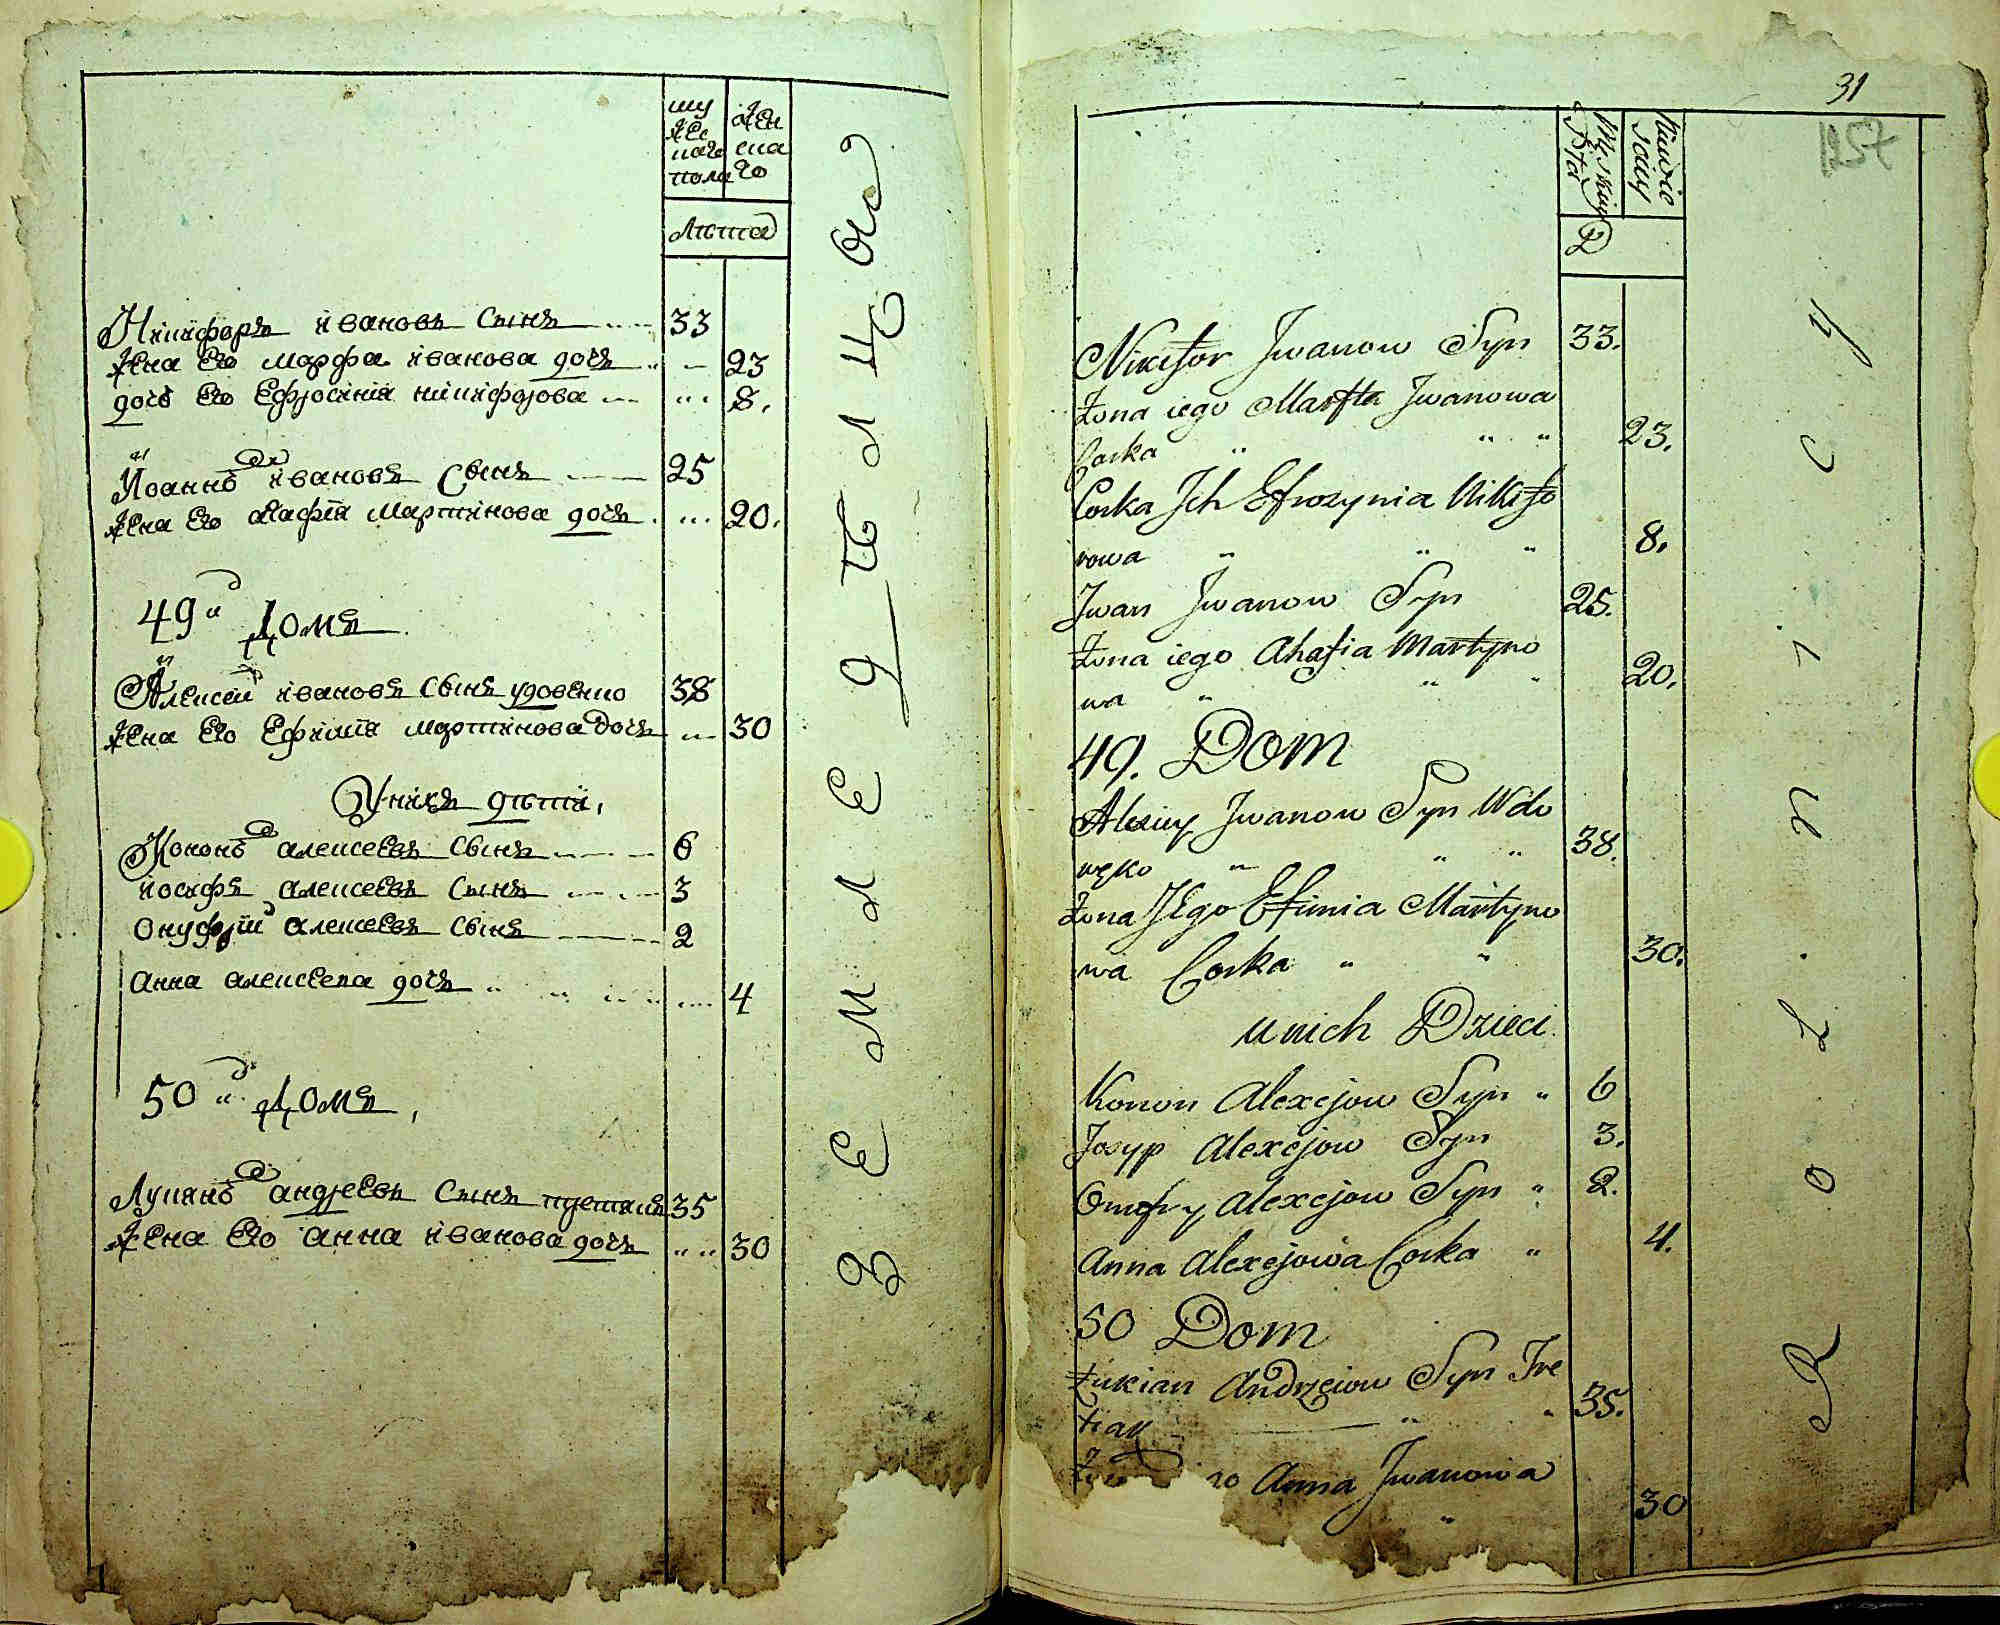 му
жес
каго
пола
жен
ска
го
Лѣта
Никифоръ ивановъ Сынъ 33
жена Его марфа иванова дочь 23
дочь Его Ефросинiя никифорова 8.
Иоаннъ ивановъ Сынъ 25
жена Его Агафiя Мартинова дочь 20.
49й Домъ
Алексей ивановъ Сынъ удовенко 38
жена Его Ефимiя мартинова дочь 30
У нихъ дѣти,
Кононъ алексеевъ Сынъ 6
иосифъ алексеевъ Сынъ 3
онуфрiй алексеевъ Сынъ 2
анна алексеева дочь 4
50й Домъ,
Лукянъ андреевъ Сынъ третякъ 35
жена Его анна иванова дочь 30
земледѣлца
31
1257
Męskiey
Płci
Niewie
sciey
L
Nikifor Jwanow Syn 33.
Żona iego Marfta Jwanowa
Corka " " " 23.
Corka Jch Efrozynia Nikifo
rowa " " " 8.
Jwan Jwanow Syn 25.
Żona iego Ahafia Martyno
wa " " " 20.
49. Dom
Alexiey Jwanow Syn Wdo
węko " " " 38.
Żona JEgo Efimia Martyno
wa Corka " " 30.
u nich Dzieci
Konon Alexejow Syn " 6
Josyp Alexejow Syn 3.
Onufry Alexejow Syn " 2.
Anna Alexejowa Corka " 4.
50 Dom
Łukian Andrzeiow Syn Tre
tiak " " 35.
Anna Jwanowa
" 30
Rolnicy